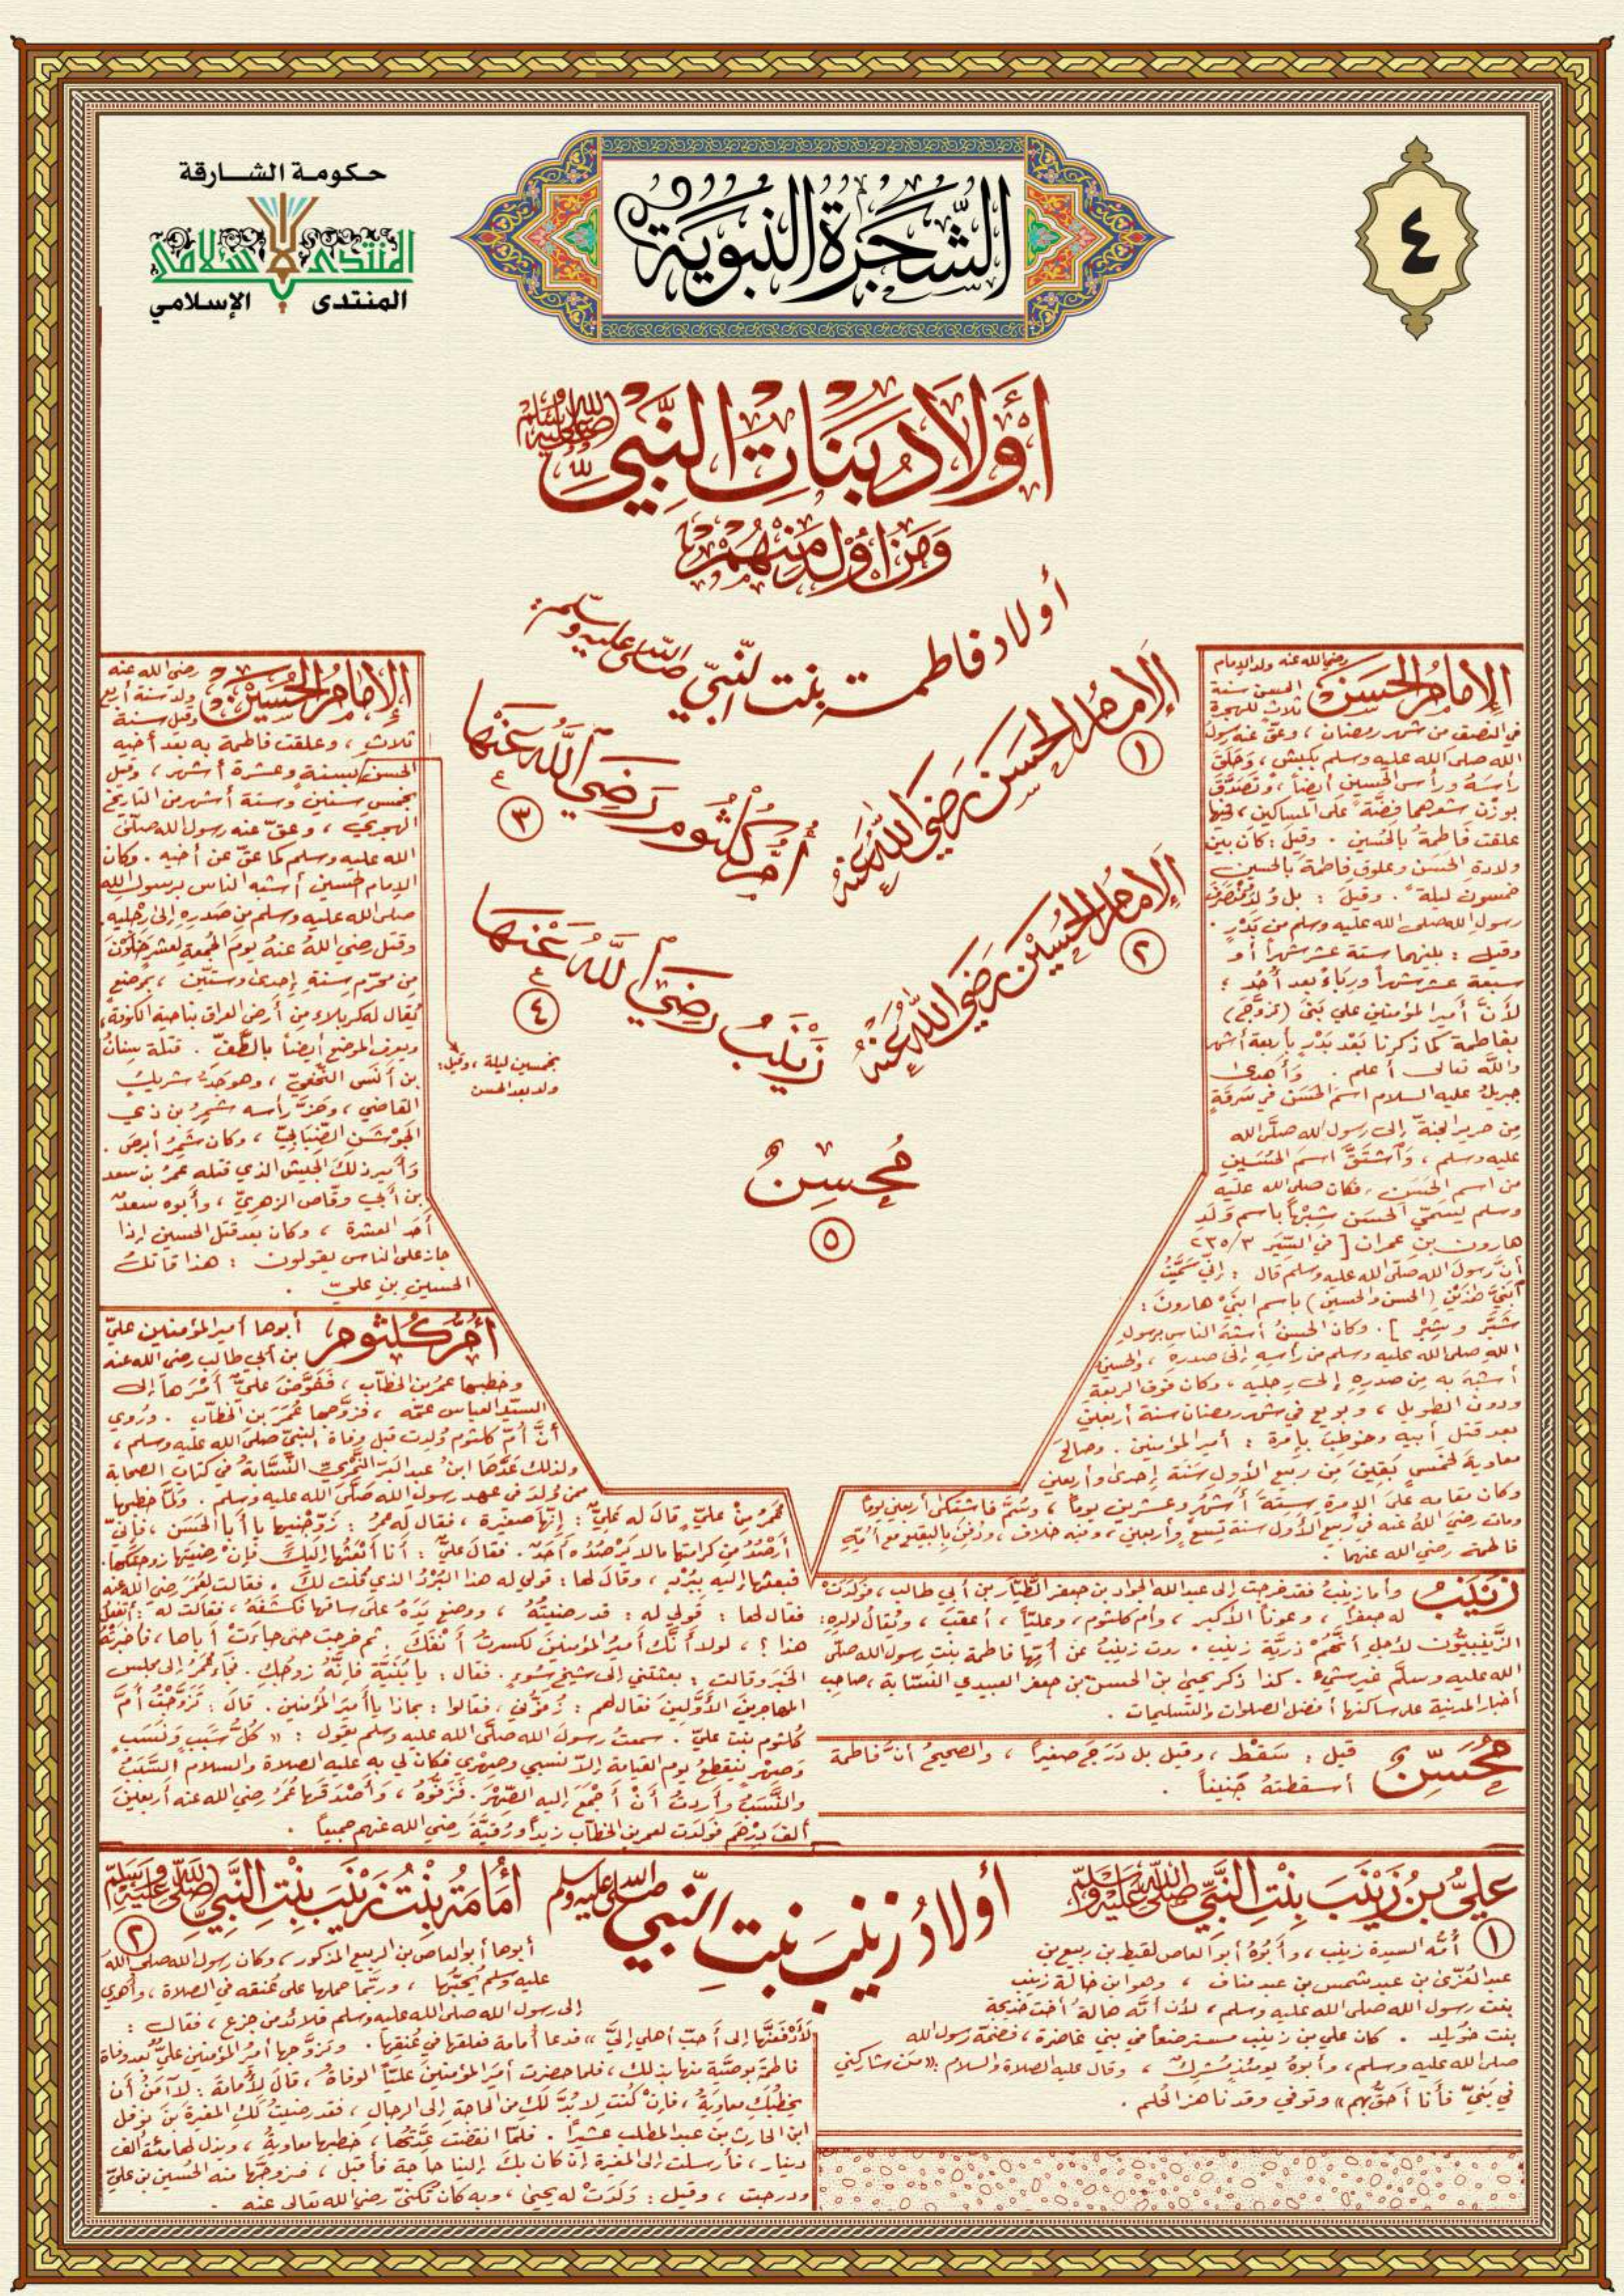 حكومة الشارقة
المنتدى الإسلامي
المنتدى الإسلامي
الشَّجَرَةُ النَّبَوِيَّة
٤
أَوْلَادُ بَنَاتِ النَّبِيِّ صلى الله عليه وسلم
وَمَنْ أَوْلَدَ مِنْهُمْ
أولاد فاطمة بنت النّبيّ صلى الله عليه وسلم
الإمامُ الحسَن رَضِيَ اللهُ عَنْهُ
١
الإمامُ الحُسَيْن رَضِيَ اللهُ عَنْهُ
٢
أُمّ كُلثُوم رَضِيَ اللهُ عَنْهَا
٣
زَيْنَبُ رَضِيَ اللهُ عَنْهَا
٤
مُحْسِنُ
٥
الإمامُ الحَسَنُ رضي الله عنه ولد الإمام
الحسن سنة
ثلاثٍ للهجرة
في النصف من شهر رمضان ، وعقّ عنه رسول
الله صلى الله عليه وسلم بكبش ، وَحَلَقَ
رأسَهُ ورأس الحُسينِ أيضاً ، وتَصَدَّقَ
بوزْن شعرهما فِضّةً على المساكين ،
علقت فَاطِمةُ بالحُسينِ . وقيل : كان بين
ولادةِ الحَسَن وعلوقِ فاطمةَ بالحسينِ
خمسون ليلةً . وقيلَ : بل وُلِدَ
رسولِ الله صلى الله عليه وسلم من بَدْرٍ .
وقيل : بينهما ستة عشر شهراً أو
سبعة عشر شهراً بعد أُحُد ؛
لأنَّ أميرَ المؤمنين علي بَنَى (تزوَّجَ)
بفاطمة كما ذكرنا بَعْدَ بَدْرٍ بأربعة أشهر
واللّه تعالى أعلم . وَأَهدى
جبريلُ عليه السلام اسمَ الحَسَن في سَرَقَةٍ
مِن حرير الجنةِ إلى رسول الله صلَّى الله
عليه وسلم ، وَاشتَقَّ اسمَ الحُسَينِ
من اسم الحَسَنِ ، فكان صلى الله عليه
وسلم يُسمّي الحَسَن شَبَّراً باسم وَلَدِ
هارون بنِ عمران [ في السِّيَر ٣/٢٣٥
أنَّ رسولَ الله صلّى الله عليه وسلم قال : إنّي سَمَّيتُ
ابْنَيَّ هٰذَيْنِ (الحسن والحسين) باسم ابنَيْ هارون :
شَبَّر وشَبِير ] . وكان الحسنُ أشبَهَ الناسِ برسولِ
اللهِ صلى الله عليه وسلم من رأسِهِ إلى صدرِهِ ، والحسينُ
أشبَهَ به مِن صدرِهِ إلى رجليه ، وكان فوق الربعةِ
ودون الطويل ، وبويع في شهر رمضان سنة أربعين
بعد قتل أبيه وخوطِبَ بإمرة : أمير المؤمنين . وصالحَ
معاوية لخمسٍ بَقِينَ مِن ربيع الأول سَنَة إحدى وأربعين
وكان مقامه على الإمرةِ ستةَ أشهُرٍ وعشرين يوماً ، وسُمَّ فاشتكى أربعين يوماً
ومات رضيَ اللهُ عنه في ربيع الأول سنة تسع وأربعين ، وفيه خلاف ، ودُفِنَ بالبقيع مع أُمِّهِ
فاطمة رضي الله عنهما .
الإمامُ الحُسَيْنُ رضي الله عنه
ولد سنة أربعٍ
وقيل سنة
ثلاثٍ ، وعلقت فاطمة به بعد أخيه
الحسن بسنة وعشرة أشهر ، وقيل
بخمس سنين وستة أشهر من التاريخ
الهجري ، وعقّ عنه رسول الله صلّى
الله عليه وسلم كما عقّ عن أخيه . وكان
الإمام الحسين أشبه الناس برسول الله
صلى الله عليه وسلم من صَدرِهِ إلى رِجْلَيهِ
وقتل رضي اللهُ عنهُ يومَ الجمعةِ لعشرٍ خَلَوْنَ
مِن محرّم سنةِ إحدى وستّين ، بموضع
يُقال له كربلاء من أرض العراق بناحية الكوفة
ويعرف الموضع أيضاً بالطَّفِّ . قتله سِنانُ
بن أَنَس النَّخَعيّ ، وهو جَدُّ شريك
القاضي ، وحزَّ رأسه شِمرُ بن ذي
الجَوشَنِ الضِّبَابيّ ، وكان شَمِرُ أبرصَ .
وأمير ذلكَ الجيش الذي قتله عمرُ بن سعد
بن أبي وقاص الزهريّ ، وأبوه سعدٌ
أحد العشرة ، وكان بعد قتل الحسين إذا
جاز على الناس يقولون : هذا قاتلُ
الحسينِ بنِ عليّ .
بخمسين ليلة ، وقيل :
ولد بعد الحسن
أُمُّ كُلثُوم أبوها أميرالمؤمنين عليّ
بن أبي طالب رضي الله عنه
وخطبها عمرُ بن الخطّاب ، فَفَوَّضَ عليٌّ أَمْرَها إلى
السيّد العباس عمّه ، فزوَّجها عُمَرَ بن الخطّابِ . ورُوي
أنَّ أُمّ كلثوم وُلِدت قبل وفاة النبيّ صلى الله عليه وسلم ،
ولذلك عَدَّها ابنُ عبد البَرّ النَّمَريّ النَّسَّابةُ في كتاب الصحابة
ممن وُلِدَ في عهد رسول الله صلى الله عليه وسلم . ولمّا خطبها
عُمَرُ مِنْ عليٍّ قالَ له عَليٌّ : إنّها صغيرة ، فقال له عمرُ : زَوِّجْنِيها يا أبا الحَسَن ، فإنّي
أَرْصُدُ من كرامتها ما لا يَرْصُدُه أحدٌ . فقال عليٌّ : أنا أبعثُها إليكَ فإنْ رضيتَها زوجتُكَها.
فبعثها إليه ببُرْدٍ ، وقال لها : قولي له هذا البُرْدُ الذي قلت لكَ . فقالت لعُمَرَ رضي الله عنه
فقال لها : قولي له : قد رضيتُهُ ، ووضع يَدَهُ على ساقها فكشَفَهُ ، فقالت له : أتفعل
هذا ؟ ، لولا أنّك أميرُ المؤمنينَ لكسرتُ أنْفَكَ . ثم خرجت حتى جاءَتْ أباها ، فأخبَرَتْهُ
الخَبَرَ وقالت : بعثتني إلى شيخِ سُوءٍ . فقال : يا بُنَيّة فإنّهُ زوجُكِ . فجاءَ عُمَرُ إلى مجلس
المهاجرينَ الأَوَّلينَ فقال لهم : زُفُّوني ، فقالوا : بماذا يا أميرَ المؤمنين . قالَ : تَزَوَّجتُ أُمَّ
كلثوم بنت عليّ . سمعتُ رسولَ الله صلّى الله عليه وسلم يقول : « كلُّ سَبَبٍ وَنَسَبٍ
وَصِهرٍ يَنقطعُ يوم القيامة إلاّ نسبي وصِهري فكانَ لي به عليه الصلاة والسلام السَّبَبُ
والنَّسَبُ وأردتُ أنْ أجْمَعَ إليه الصِّهْرَ. فَزَفّوهُ ، وأصْدَقَها عُمَرُ رضي الله عنه أربعينَ
ألفَ دِرْهَم فوَلَدَت لعمر بن الخطّاب زيداً ورُقيَّةَ رضي الله عنهم جميعاً .
زَيْنَبُ وأما زينبُ فقد خرجت إلى عبدالله الجوادِ بن جعفر الطَّيَّارِ بن أبي طالب ، فوَلَدَتْ
له جعفراً ، وعوناً الأكبر ، وأم كلثوم ، وعليّاً ، أعقبَ ، ويُقالُ لولدِهِ:
الزَّينَبِيُّون لأجلِ أنَّهُمْ ذريّة زينب . روت زينبُ عن أُمّها فاطمة بنتِ رسول الله صلّى
الله عليه وسلَّم غير شيء . كذا ذكر يحيى بن الحسن بن جعفر العبيدي النّسّابة ، صاحب
أخبار المدينة على ساكنها أفضل الصلوات والتسليمات .
مُحَسِّنٌ قيل : سَقْط ، وقيل بل دَرَجَ صغيراً ، والصحيحُ أنَّ فاطمة
أسقطتهُ جنيناً .
أولادُ زينبَ بنتِ النّبيّ صلى الله عليه وسلم
عليُّ بنُ زَيْنَبَ بِنْتِ النَّبِيِّ صلى الله عليه وسلم
١ أُمُّه السيدة زينب ، وأَبُوهُ أبو العاص لقيط بن ربيع بن
عبد العُزّى بن عبد شمس بن عبد مناف ، وهو ابن خالة زينب
بنت رسول الله صلى الله عليه وسلم ، لأن أمّه هالةُ أخت خديجة
بنت خويلد . كان علي بن زينب مسترضعاً في بني غاضرة ، فضمّه رسول الله
صلى الله عليه وسلم ، وأبوهُ يومئذٍ مُشركٌ ، وقال عليه الصلاة والسلام : « مَنْ شاركني
في بَنِيَّ فأنا أحقُّ بهم » وتوفي وقد ناهز الحُلم .
أُمَامَةُ بِنْتُ زَيْنَبَ بِنْتِ النَّبِيِّ صلى الله عليه وسلم
٢
أبوها أبوالعاص بن الربيع المذكور ، وكان رسول الله صلى اللهُ
عليه وسلم يُحبّها ، وربّما حملها على عُنقه في الصلاة ، وأُهدي
إلى رسول الله صلى الله عليه وسلم قلائد من جزع ، فقال :
لأَدْفَعَنَّها إلى أحبّ أهلي إليَّ ، فدعا أُمامة فعلقها في عُنقِها . وتَزوَّجها أميرُ المؤمنين عليٌّ بعد وفاة
فاطمة بوصيّة منها بذلك ، فلما حضرت أميرَ المؤمنين عليّاً الوفاةُ ، قالَ لأُمامة : لا آمَنُ أن
يخطُبَكِ معاويةُ ، فإنْ كُنتِ لا بُدَّ لكِ من الحاجةِ إلى الرجالِ ، فقد رضيتُ لكِ المغيرةَ بنَ نوفل
ابن الحارث بن عبد المطلب عشيراً . فلمّا انقضَت عِدَّتُها ، خطبها معاويةُ ، وبذل لها مئة ألف
دينار ، فأرسلت إلى المغيرة إن كان بك إلينا حاجة فأقبل ، فتزوجَّها منه الحسين بن عليّ
ودرجت ، وقيل : وَلَدَتْ له يحيى ، وبه كان تُكنّى رضي الله تعالى عنه .